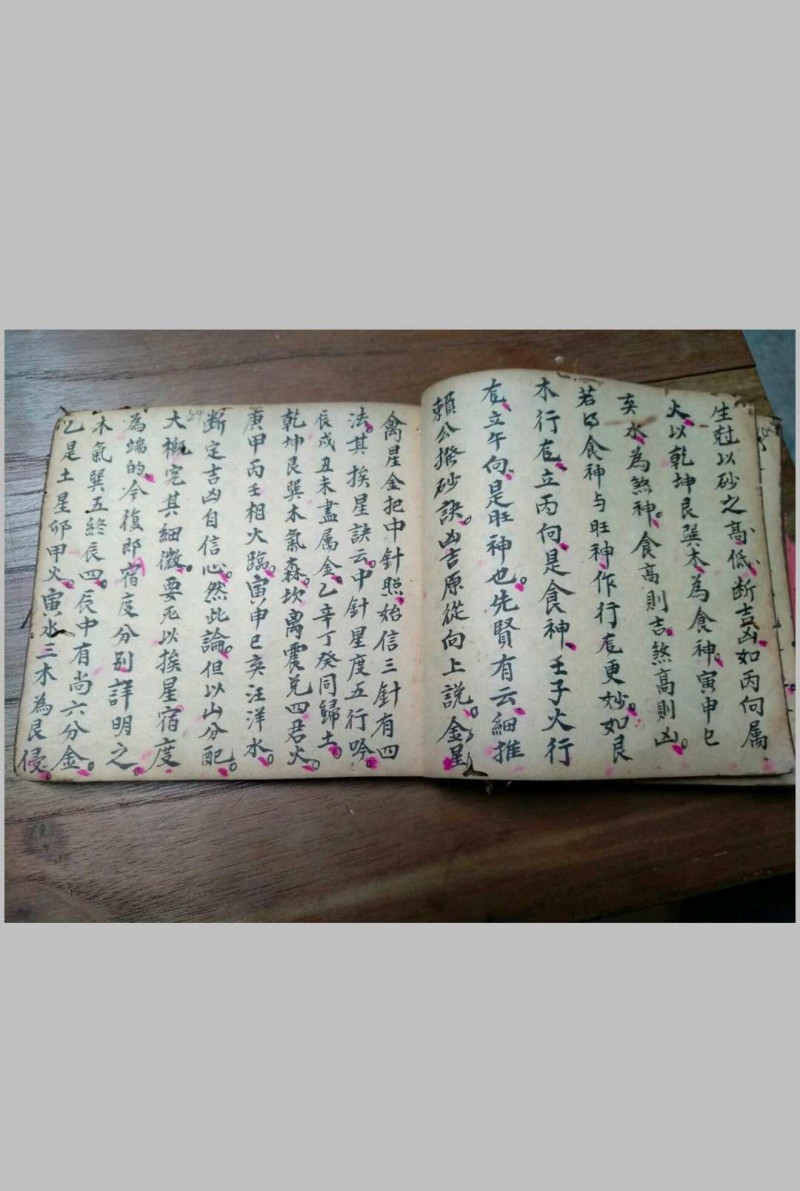 生尅以砂之高低断吉凶如丙向属
火以乾坤艮巽木為食神寅申巳
亥水為煞神。食高則吉煞高則凶
若以食神与旺神作行龙更妙如艮
木行龙立丙向是食神壬子火行
龙立午向是旺神也。先賢有云細推
賴公撥砂訣。凶吉原從向上説。金星
禽星全把中針照始信三針有四
法。其挨星訣云中針星度五行吟。
辰戌丑未盡属金。乙辛丁癸同歸土。
乾坤艮巽木氣森坎离震兑四君火。
庚甲丙壬相火臨寅申巳亥汪洋水。
断定吉凶自信心。然此論。但以山分配。
大概究其細微。要死以挨星宿度
為端的。今復即宿度分别詳明之。
木氣巽五終辰四。辰中有尚六分金。
乙是土星卯甲火。寅水三木為艮侵。